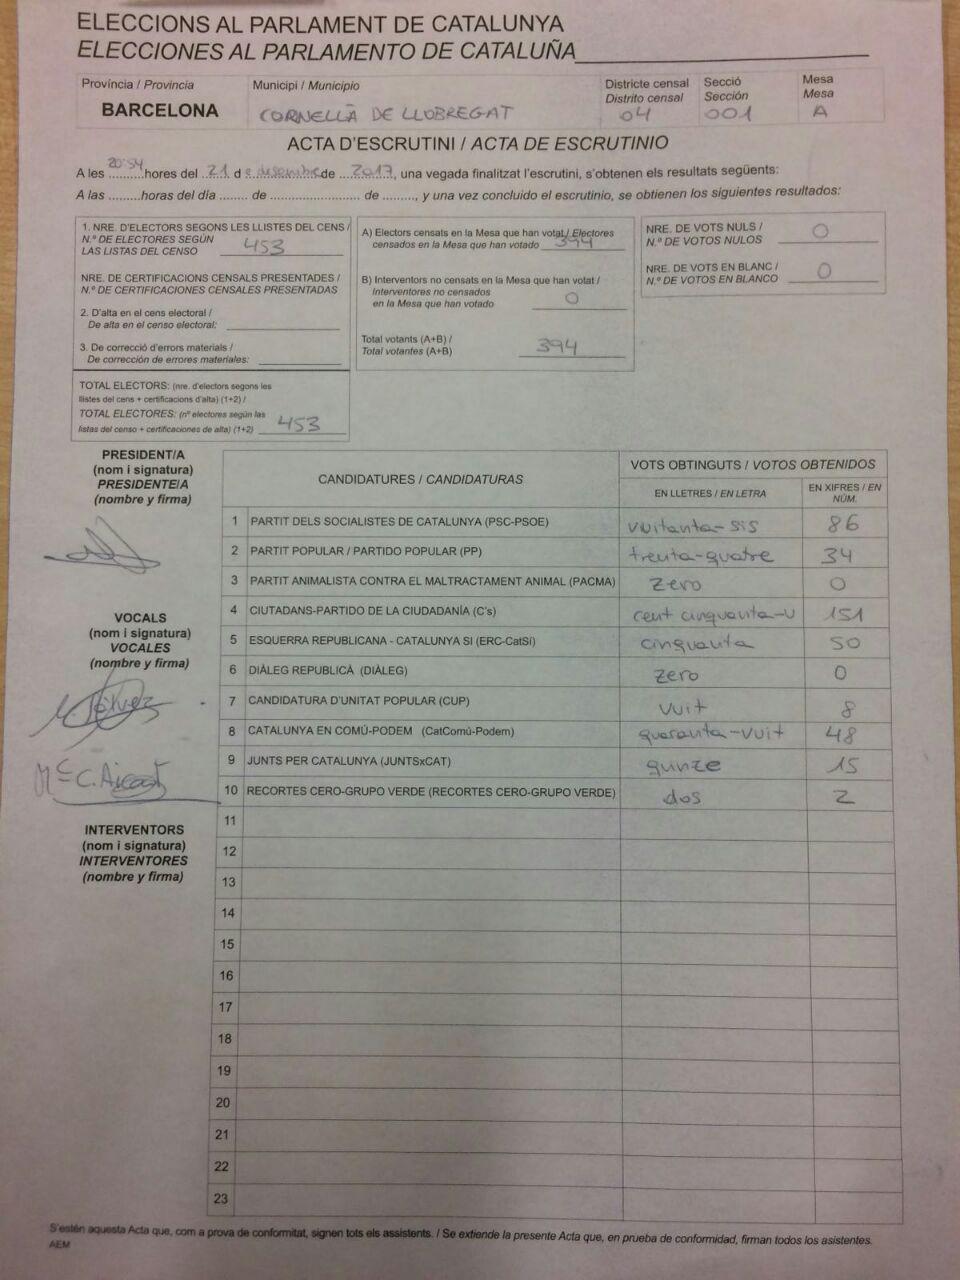 ELECCIONS AL PARLAMENT DE CATALUNYA
ELECCIONES AL PARLAMENTO DE CATALUÑA
Província / Provincia
BARCELONA
Municipi / Municipio
CORNELLÀ DE LLOBREGAT
Districte censal
Distrito censal
04
Secció
Sección
001
Mesa
Mesa
A
ACTA D'ESCRUTINI / ACTA DE ESCRUTINIO
A les 20:54 hores del 21 de desembre de 2017, una vegada finalitzat l'escrutini, s'obtenen els resultats següents:
A las .........horas del día ....... de ........................ de ........, y una vez concluido el escrutinio, se obtienen los siguientes resultados:
1. NRE. D'ELECTORS SEGONS LES LLISTES DEL CENS /
N.º DE ELECTORES SEGÚN
LAS LISTAS DEL CENSO 453
NRE. DE CERTIFICACIONS CENSALS PRESENTADES /
N.º DE CERTIFICACIONES CENSALES PRESENTADAS
2. D'alta en el cens electoral /
De alta en el censo electoral:
3. De correcció d'errors materials /
De corrección de errores materiales:
TOTAL ELECTORS: (nre. d'electors segons les
llistes del cens + certificacions d'alta) (1+2) /
TOTAL ELECTORES: (nº electores según las
listas del censo + certificaciones de alta) (1+2) 453
A) Electors censats en la Mesa que han votat / Electores
censados en la Mesa que han votado 394
B) Interventors no censats en la Mesa que han votat /
Interventores no censados
en la Mesa que han votado 0
Total votants (A+B) /
Total votantes (A+B) 394
NRE. DE VOTS NULS /
N.º DE VOTOS NULOS 0
NRE. DE VOTS EN BLANC /
N.º DE VOTOS EN BLANCO 0
PRESIDENT/A
(nom i signatura)
PRESIDENTE/A
(nombre y firma)
VOCALS
(nom i signatura)
VOCALES
(nombre y firma)
Mª C.
INTERVENTORS
(nom i signatura)
INTERVENTORES
(nombre y firma)
CANDIDATURES / CANDIDATURAS
VOTS OBTINGUTS / VOTOS OBTENIDOS
EN LLETRES / EN LETRA
EN XIFRES / EN
NÚM.
1 PARTIT DELS SOCIALISTES DE CATALUNYA (PSC-PSOE) vuitanta-sis 86
2 PARTIT POPULAR / PARTIDO POPULAR (PP) trenta-quatre 34
3 PARTIT ANIMALISTA CONTRA EL MALTRACTAMENT ANIMAL (PACMA) zero 0
4 CIUTADANS-PARTIDO DE LA CIUDADANÍA (C's) cent cinquanta-u 151
5 ESQUERRA REPUBLICANA - CATALUNYA SI (ERC-CatSí) cinquanta 50
6 DIÀLEG REPUBLICÀ (DIÀLEG) zero 0
7 CANDIDATURA D'UNITAT POPULAR (CUP) vuit 8
8 CATALUNYA EN COMÚ-PODEM (CatComú-Podem) quaranta-vuit 48
9 JUNTS PER CATALUNYA (JUNTSxCAT) qunze 15
10 RECORTES CERO-GRUPO VERDE (RECORTES CERO-GRUPO VERDE) dos 2
11
12
13
14
15
16
17
18
19
20
21
22
23
S'estén aquesta Acta que, com a prova de conformitat, signen tots els assistents. / Se extiende la presente Acta que, en prueba de conformidad, firman todos los asistentes.
AEM